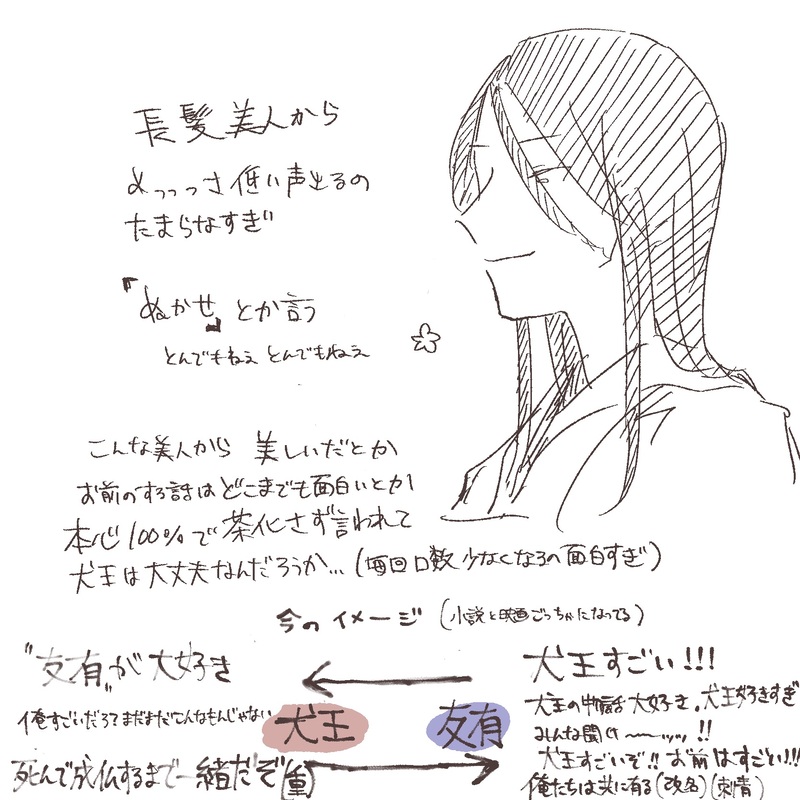 長髪美人から
めっっっさ低い声出るの
たまらなすぎ
「ぬかせ」とか言う
とんでもねぇ とんでもねぇ
こんな美人から 美しいだとか
お前のする話はどこまでも面白いとか
本心100%で茶化さず言われて
犬王は大丈夫なんだろうか…(毎回口数少なくなるの面白すぎ)
今のイメージ (小説と映画ごっちゃになってる)
"友有"が大好き
俺すごいだろ?まだまだこんなもんじゃない
死んで成仏するまで一緒だぞ(重)
犬王
友有
犬王すごい!!!
犬王の物語大好き。犬王好きすぎ
みんな聞け〜〜ッッ!!
犬王すごいぞ!!お前はすごい!!!
俺たちは共に有る(改名)(刺青)